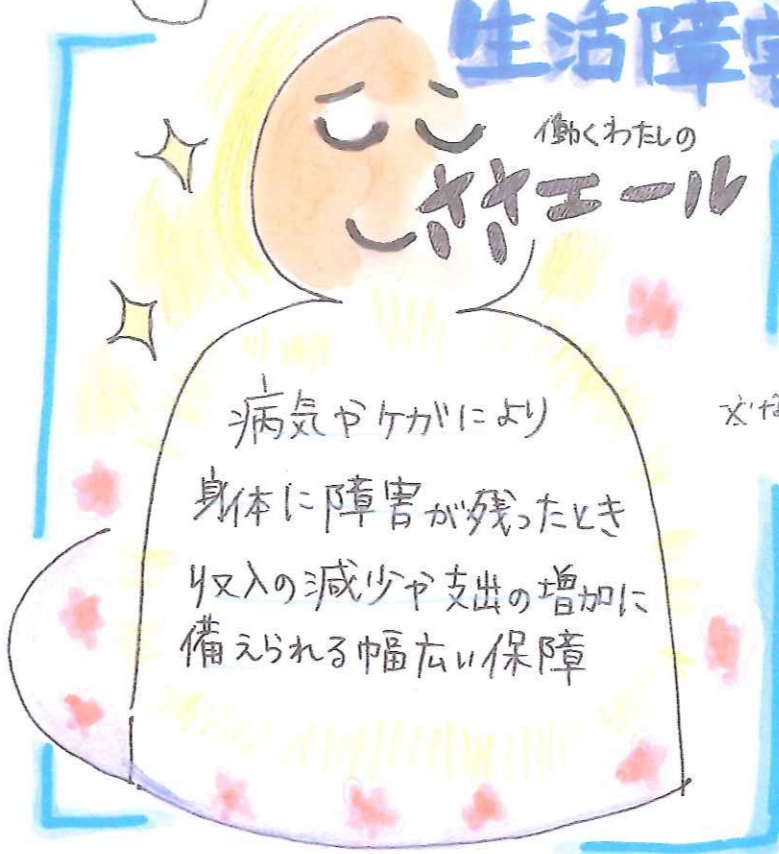 生活障
働くわたしの
ささエール
病気やケガにより
身体に障害が残ったとき
収入の減少や支出の増加に
備えられる幅広い保障